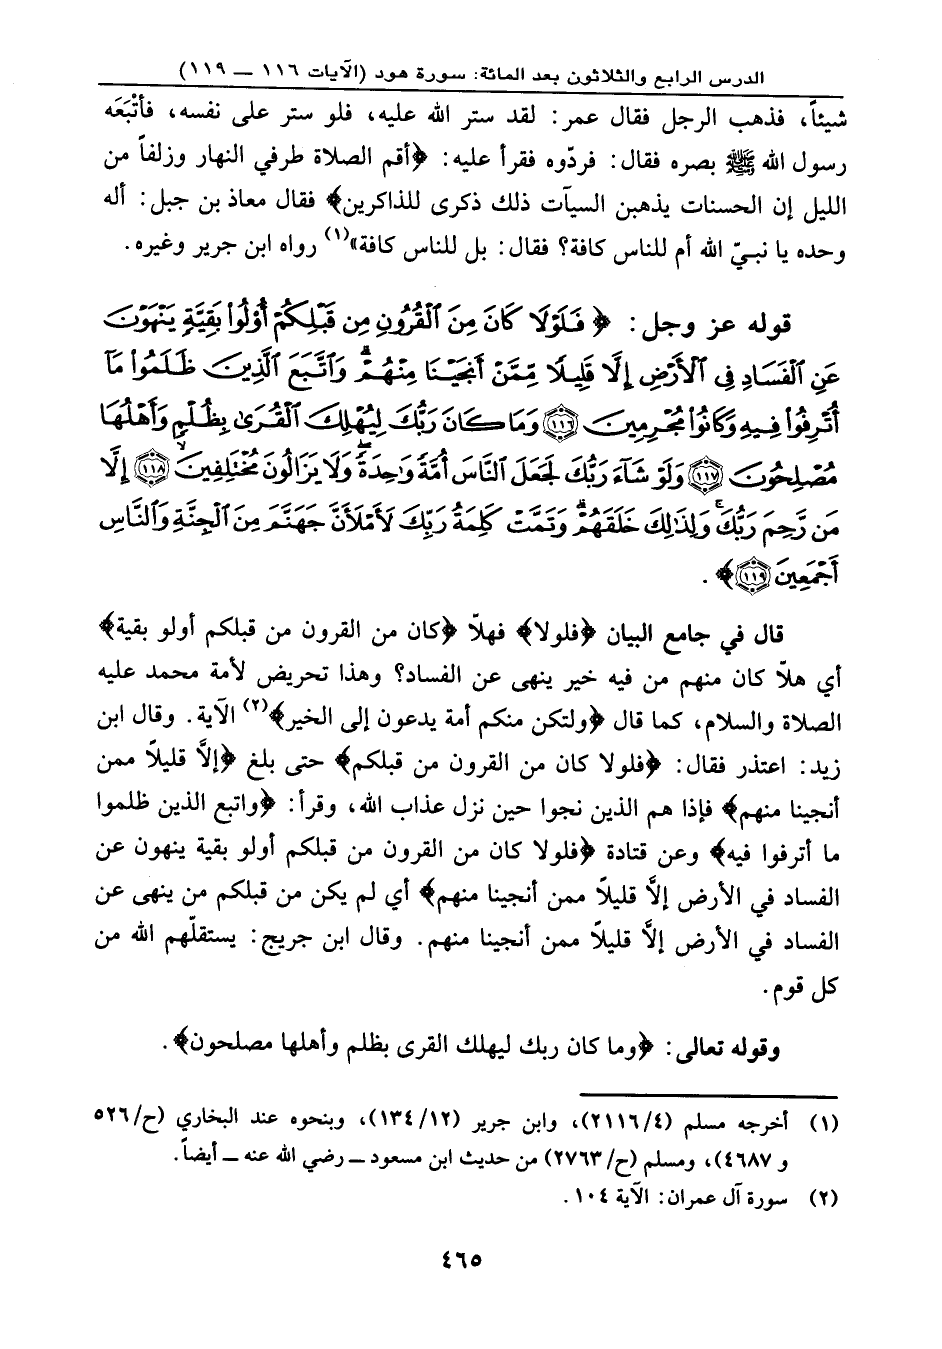 الدرس الرابع والثلاثون بعد المائة: سورة هود (الآيات ١١٦ ــ ١١٩)
شيئاً، فذهب الرجل فقال عمر: لقد ستر الله عليه، فلو ستر على نفسه، فأتْبَعَه
رسول الله ﷺ بصره فقال: فردّوه فقرأ عليه: ﴿أقم الصلاة طرفي النهار وزلفاً من
الليل إن الحسنات يذهبن السيآت ذلك ذكرى للذاكرين﴾ فقال معاذ بن جبل: أله
وحده يا نبيّ الله أم للناس كافة؟ فقال: بل للناس كافة»(١) رواه ابن جرير وغيره.
قوله عز وجل: ﴿ فَلَوْلَا كَانَ مِنَ ٱلْقُرُونِ مِن قَبْلِكُمْ أُوْلُوا۟ بَقِيَّةٍ يَنْهَوْنَ
عَنِ ٱلْفَسَادِ فِى ٱلْأَرْضِ إِلَّا قَلِيلًا مِّمَّنْ أَنجَيْنَا مِنْهُمْ ۗ وَٱتَّبَعَ ٱلَّذِينَ ظَلَمُوا۟ مَآ
أُتْرِفُوا۟ فِيهِ وَكَانُوا۟ مُجْرِمِينَ ﴿١١٦﴾ وَمَا كَانَ رَبُّكَ لِيُهْلِكَ ٱلْقُرَىٰ بِظُلْمٍ وَأَهْلُهَا
مُصْلِحُونَ ﴿١١٧﴾ وَلَوْ شَآءَ رَبُّكَ لَجَعَلَ ٱلنَّاسَ أُمَّةً وَٰحِدَةً ۖ وَلَا يَزَالُونَ مُخْتَلِفِينَ ﴿١١٨﴾ إِلَّا
مَن رَّحِمَ رَبُّكَ ۚ وَلِذَٰلِكَ خَلَقَهُمْ ۗ وَتَمَّتْ كَلِمَةُ رَبِّكَ لَأَمْلَأَنَّ جَهَنَّمَ مِنَ ٱلْجِنَّةِ وَٱلنَّاسِ
أَجْمَعِينَ ﴿١١٩﴾﴾ .
قال في جامع البيان ﴿فلولا﴾ فهلاّ ﴿كان من القرون من قبلكم أولو بقية﴾
أي هلاّ كان منهم من فيه خير ينهى عن الفساد؟ وهذا تحريض لأمة محمد عليه
الصلاة والسلام، كما قال ﴿ولتكن منكم أمة يدعون إلى الخير﴾(٢) الآية. وقال ابن
زيد: اعتذر فقال: ﴿فلولا كان من القرون من قبلكم﴾ حتى بلغ ﴿إلاَّ قليلاً ممن
أنجينا منهم﴾ فإذا هم الذين نجوا حين نزل عذاب الله، وقرأ: ﴿واتبع الذين ظلموا
ما أترفوا فيه﴾ وعن قتادة ﴿فلولا كان من القرون من قبلكم أولو بقية ينهون عن
الفساد في الأرض إلاَّ قليلاً ممن أنجينا منهم﴾ أي لم يكن من قبلكم من ينهى عن
الفساد في الأرض إلاَّ قليلاً ممن أنجينا منهم. وقال ابن جريج: يستقلّهم الله من
كل قوم.
وقوله تعالى: ﴿وما كان ربك ليهلك القرى بظلم وأهلها مصلحون﴾.
(١) أخرجه مسلم (٢١١٦/٤)، وابن جرير (١٣٤/١٢)، وبنحوه عند البخاري (ح/٥٢٦
و ٤٦٨٧)، ومسلم (ح/٢٧٦٣) من حديث ابن مسعود ــ رضي الله عنه ــ أيضاً.
(٢) سورة آل عمران: الآية ١٠٤.
٤٦٥